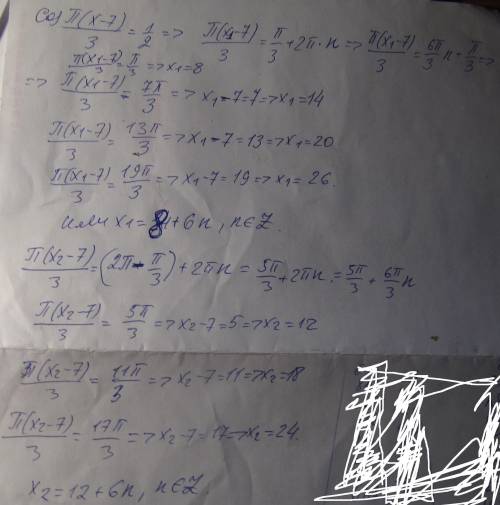 cos π(x-7)/3 = 1/2 => π(x₁-7)/3 = π/3 + 2π·n => π(x₁-7)/3 = 6π/3 n + π/3 =>
π(x₁-7)/3 = π/3 => x₁ = 8
=> π(x₁-7)/3 = 7π/3 => x₁-7=7 => x₁=14
π(x₁-7)/3 = 13π/3 => x₁-7=13 => x₁=20
π(x₁-7)/3 = 19π/3 => x₁-7=19 => x₁=26.
или x₁ = 8+6n, n∈Z.
π(x₂-7)/3 = (2π-π/3)+2πn = 5π/3+2πn = 5π/3 + 6π/3 n
π(x₂-7)/3 = 5π/3 => x₂-7=5 => x₂=12
π(x₂-7)/3 = 11π/3 => x₂-7=11 => x₂=18
π(x₂-7)/3 = 17π/3 => x₂-7=17 => x₂=24.
x₂=12+6n, n∈Z.